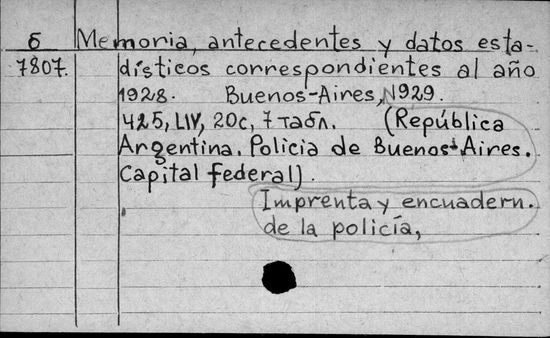 б Memoria, antecedentes y datos esta-
7807. dísticos correspondientes al año
1928. Buenos-Aires, 1929.
425, LIV, 20c, 7 табл. (República
Argentina. Policia de Buenos-Aires.
Capital federal).
Imprenta y encuadern.
de la policía,